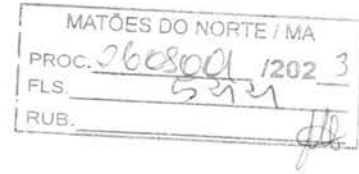 MATÕES DO NORTE / MA
PROC. 2608001 /202 3
FLS.
RUB.